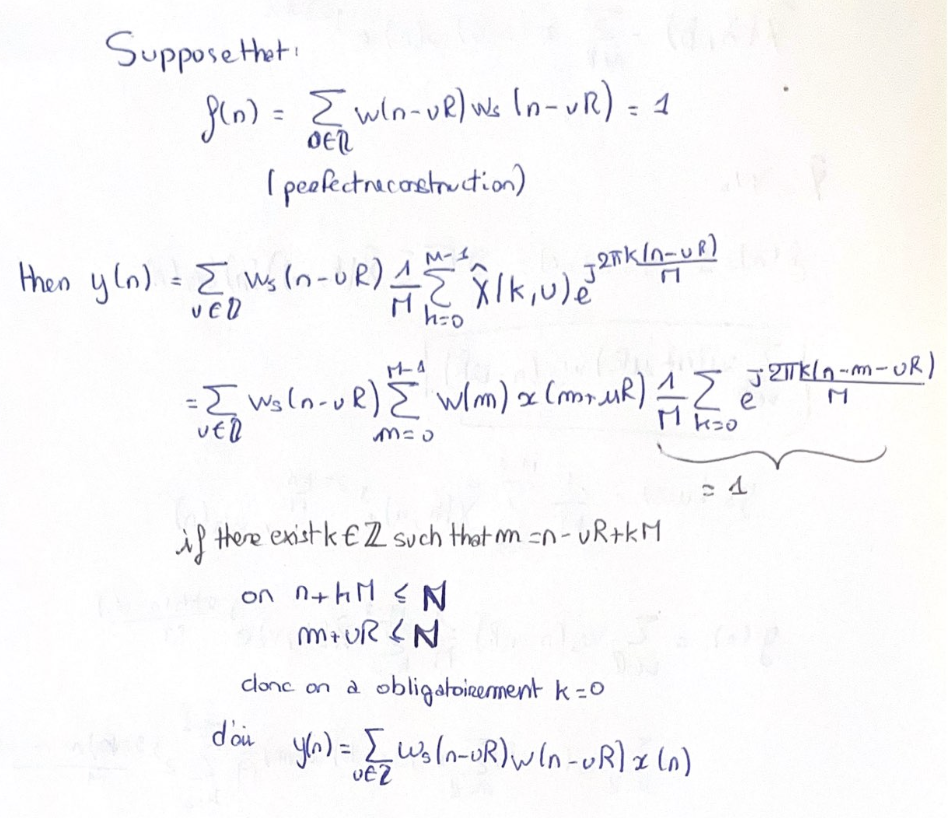 Suppose that:
f(n) = ∑_{υ∈ℤ} w(n-υR) ws (n-υR) = 1
(perfect reconstruction)
then y(n) = ∑_{υ∈ℤ} ws (n-υR) 1/M ∑_{k=0}^{M-1} X̂(k,υ) e^{j2πk(n-υR)/M}
= ∑_{υ∈ℤ} ws (n-υR) ∑_{m=0}^{M-1} w(m) x (m+uR) 1/M ∑_{k=0} e^{j2πk(n-m-υR)/M}
= 1
if there exist k∈ℤ such that m = n-υR+kM
on n+kM ≤ N
m+υR ≤ N
donc on a obligatoirement k=0
d'où y(n) = ∑_{υ∈ℤ} ws(n-υR) w(n-υR) x(n)